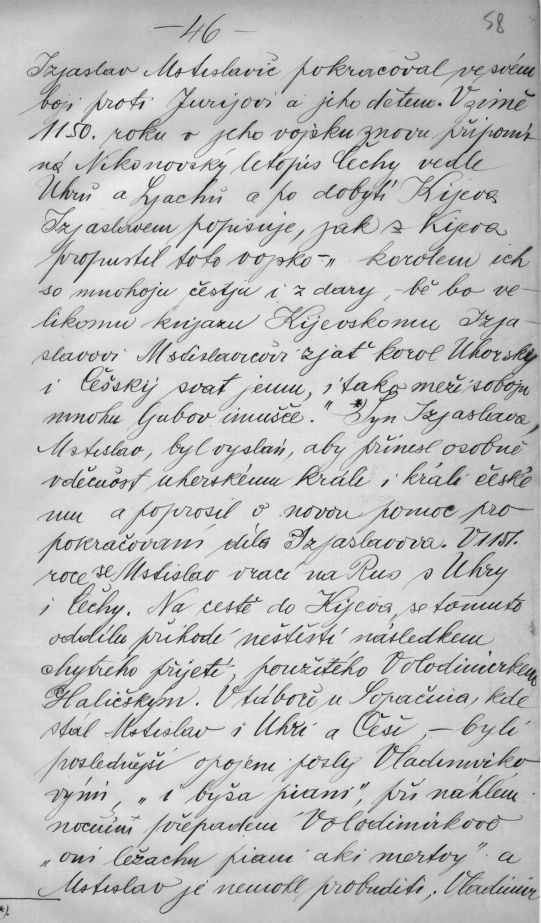 — 46 —
58
Izjaslav Mstislavič pokračoval ve svém
boji proti Jurijovi a jeho dětem. V zimě
1150. roku v jeho vojsku znovu připomí-
ná Nikonovský letopis Čechy vedle
Uhrů a Ljachů a po dobytí Kijeva
Izjaslavem popisuje, jak z Kijeva
propustil toto vojsko – „korolem ich
so mnohoju čestju i z dary, bě bo ve-
likomu knjazu Kijevskomu Izja-
slavovi Mstislavičovi zjať korol Uhorsky
i Češský svat jemu, i tako meži soboju
mnohu ljubov imušče." *) Syn Izjaslava,
Mstislav, byl vyslán, aby přinesl osobně
vděčnost uherskému králi i králi české-
mu a poprosil o novou pomoc pro
pokračování díla Izjaslavova. V 1151.
roce se Mstislav vrací na Rus s Uhry
i Čechy. Na cestě do Kijeva se tomuto
oddílu přihodí neštěstí následkem
chytrého přijetí, použitého Volodimirkem
Haličským. V táboře u Sopačina, kde
stál Mstislav i Uhři a Češi, – byli
poslednější opojeni posly Vladimirko-
vými, „i byša piani", při náhlém
nočním přepadem Volodimirkovo
„oni ležachu piani aki mertvy" a
Mstislav je nemohl probuditi. Vladimir
*)